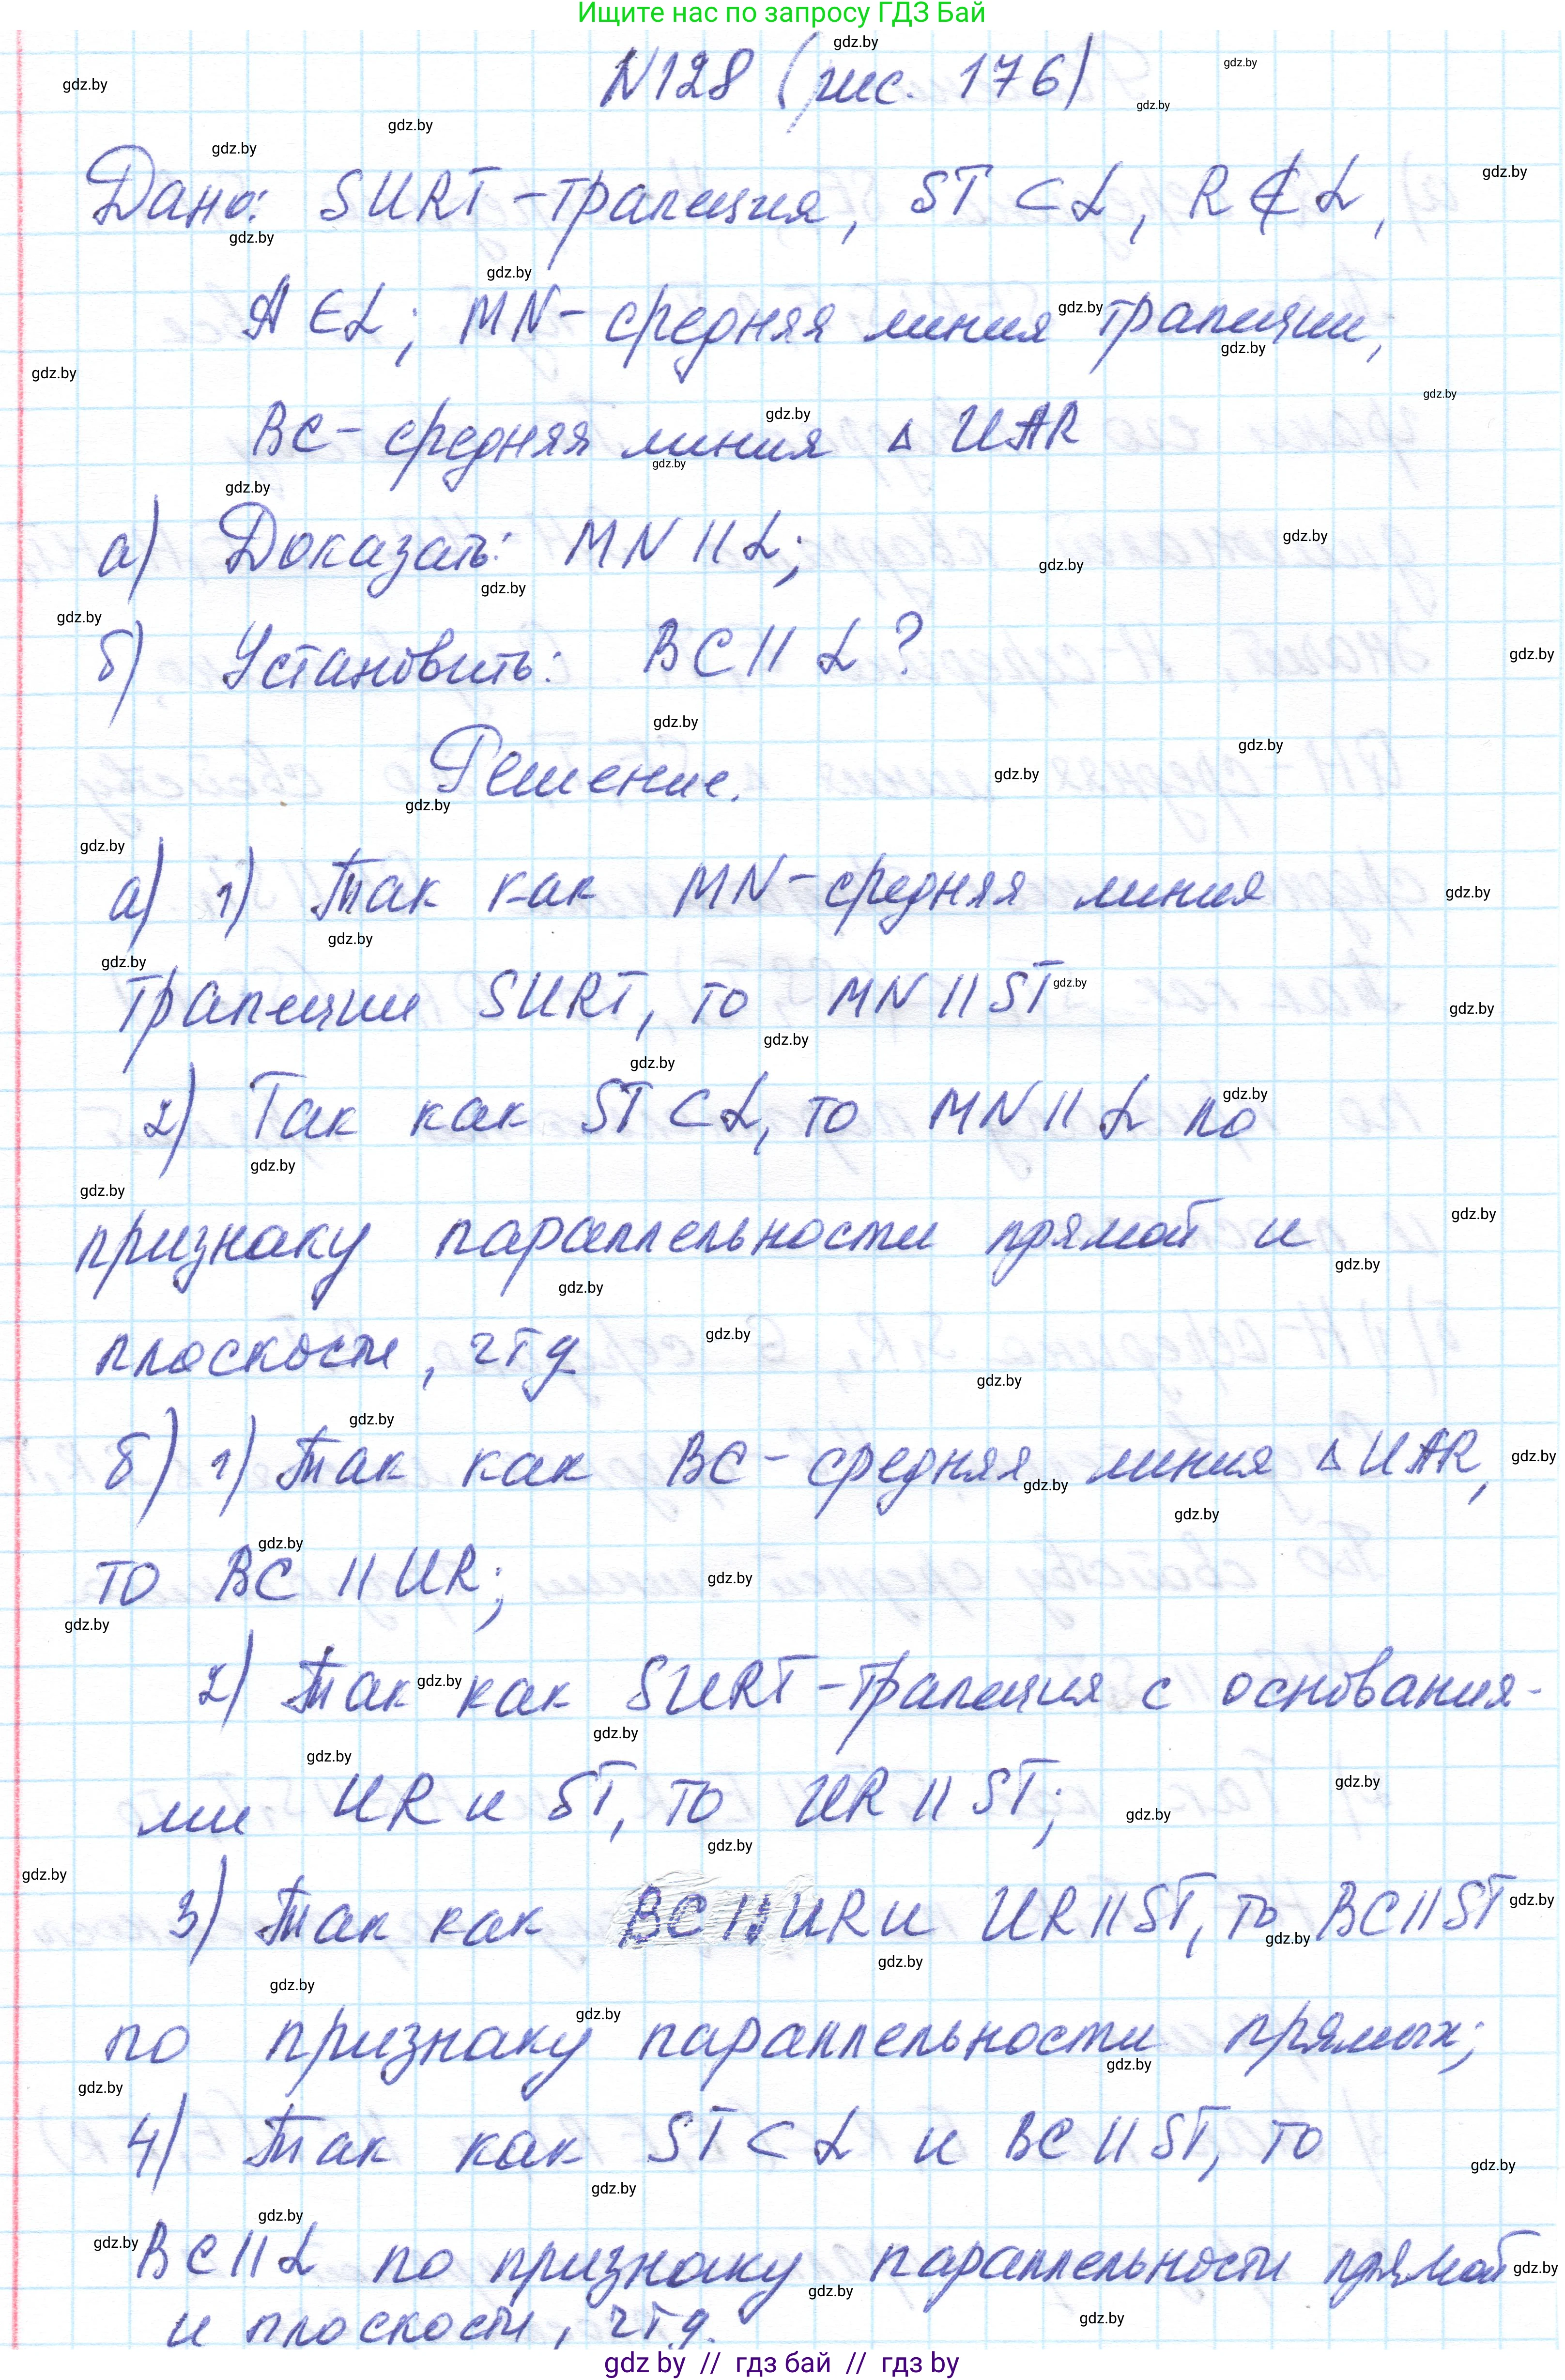 Ищите нас по запросу ГДЗ Бай
N128 (рис. 176)
Дано: SURT - трапеция, ST ⊂ α, R ⊄ α,
A ∈ α; MN - средняя линия трапеции,
BC - средняя линия ▵ UAR
а) Доказать: MN || α;
б) Установить: BC || α?
Решение.
а) 1) Так как MN - средняя линия
трапеции SURT, то MN || ST
2) Так как ST ⊂ α, то MN || α по
признаку параллельности прямой и
плоскости, чтд
б) 1) Так как BC - средняя линия ▵ UAR,
то BC || UR;
2) Так как SURT - трапеция с основания-
ми UR и ST, то UR || ST;
3) Так как BC || UR и UR || ST, то BC || ST
по признаку параллельности прямых;
4) Так как ST ⊂ α и BC || ST, то
BC || α по признаку параллельности прямой
и плоскости, чтд.
gdz by // гдз бай // гдз by